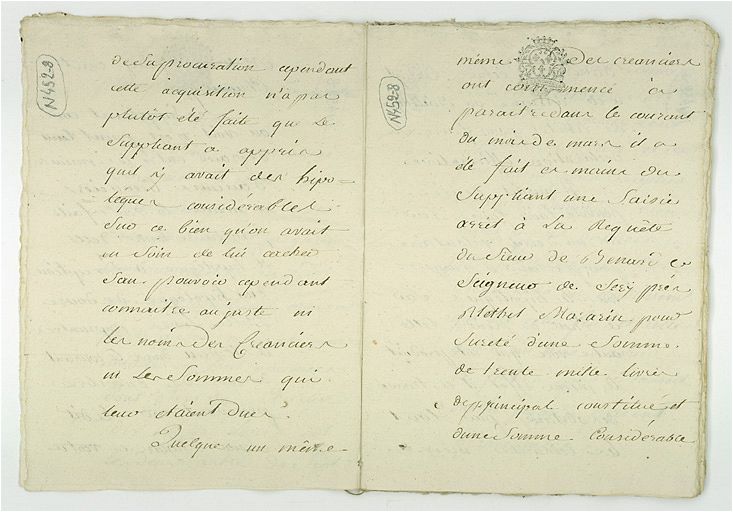 N452-8
de sa procuration cependant
cette acquisition n'a pas
plutôt été faite que Le
Suppliant a appris
quil y avait des hipo=
teques considerables
Sur ce bien qu'on avait
eu Soin de lui cacher
San pouvoir cependant
connaitre au juste ni
les noms des Creanciers
ni Les Sommes qui
leur etaient Dues.
Quelque un même
N452-8
même Des creanciers
ont commencé à
paraitre dans le courant
du mois de mars il a
été fait es mains du
Suppliant une Saisie
arrêt à La Requête
du Sieur de
Seigneur de Sery près
Rethel Mazarin pour
Sureté d'une Somme
de trente mille livres
de principal constitué et
d'une Somme Considérable